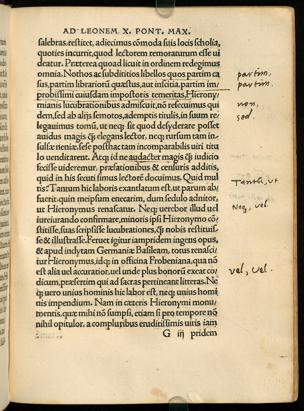 AD LEONEM X. PONT. MAX.
salebras. restitet, adiecimus cōmoda suis locis scholia,
quoties incurrit, quod lectorem remoraturum esse vi
deatur. Præterea quod licuit in ordinem redegimus
omnia. Nothos ac subdititios libellos quos partim ca
sus, partim librariorū quæstus, aut inscitia, partim im
probissimi cuiusdam impostoris temeritas, Hierony/
mianis lucubrationibus admiscuit, nō resecuimus qui
dem, sed ab alijs semotos, ademptis titulis, in suum re/
legauimus tomū, ut neq; sit quod desyderare posset
auidus magis q̄ elegans lector, neq; rursum tam in/
sulsæ næniæ
lo venditarent. Atq; id ne audacter magis q̄ iudicio
fecisse uideremur, præfationibus & censuris additis,
quid in his secuti simus lectores docuimus. Quid mul
tis? Tantum hic laboris exantlatum est, ut parum ab/
fuerit, quin meipsum enecarim, dum sedulo adnitor,
ut Hieronymus renascatur. Neq; uerebor illud uel
iureiurando confirmare, minoris ipsi Hieronymo cō/
stitisse, suas scripsisse lucubrationes, q̄ nobis restituis/
se & illustrasse. Feruet igitur iampridem ingens opus,
& apud inclytam Germaniæ Basileam, totus renasci/
tur Hieronymus, idq; in officina Frobeniana, qua nō
est alia uel accuratior, uel unde plus bonorū exeat co/
dicum, præsertim qui ad sacras pertineant litteras. Ne
q; uero unius hominis hic labor est, neq; unius homi
nis impendium. Nam in cæteris Hieronymi monu/
mentis, quæ mihi nō sumpsi, etiam si pro tempore nō
nihil opitulor, a compluribus eruditissimis uiris iam
G iij pridem
partim,
partim.
non,
sed.
Tantū, ut
Neq, vel.
vel, vel.